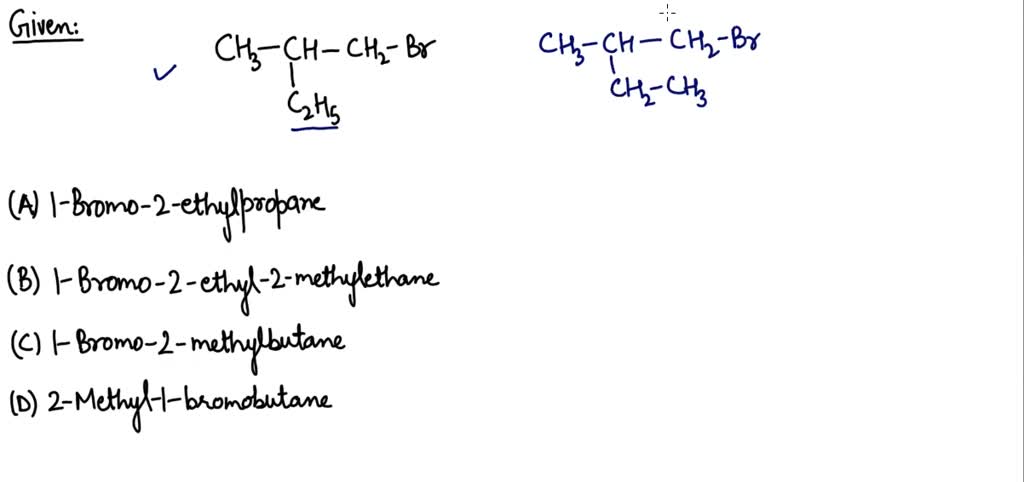 Given:
CH₃-CH-CH₂-Br
C₂H₅
CH₃-CH-CH₂-Br
CH₂-CH₃
(A) 1-Bromo-2-ethylpropane
(B) 1-Bromo-2-ethyl-2-methylethane
(C) 1-Bromo-2-methylbutane
(D) 2-Methyl-1-bromobutane